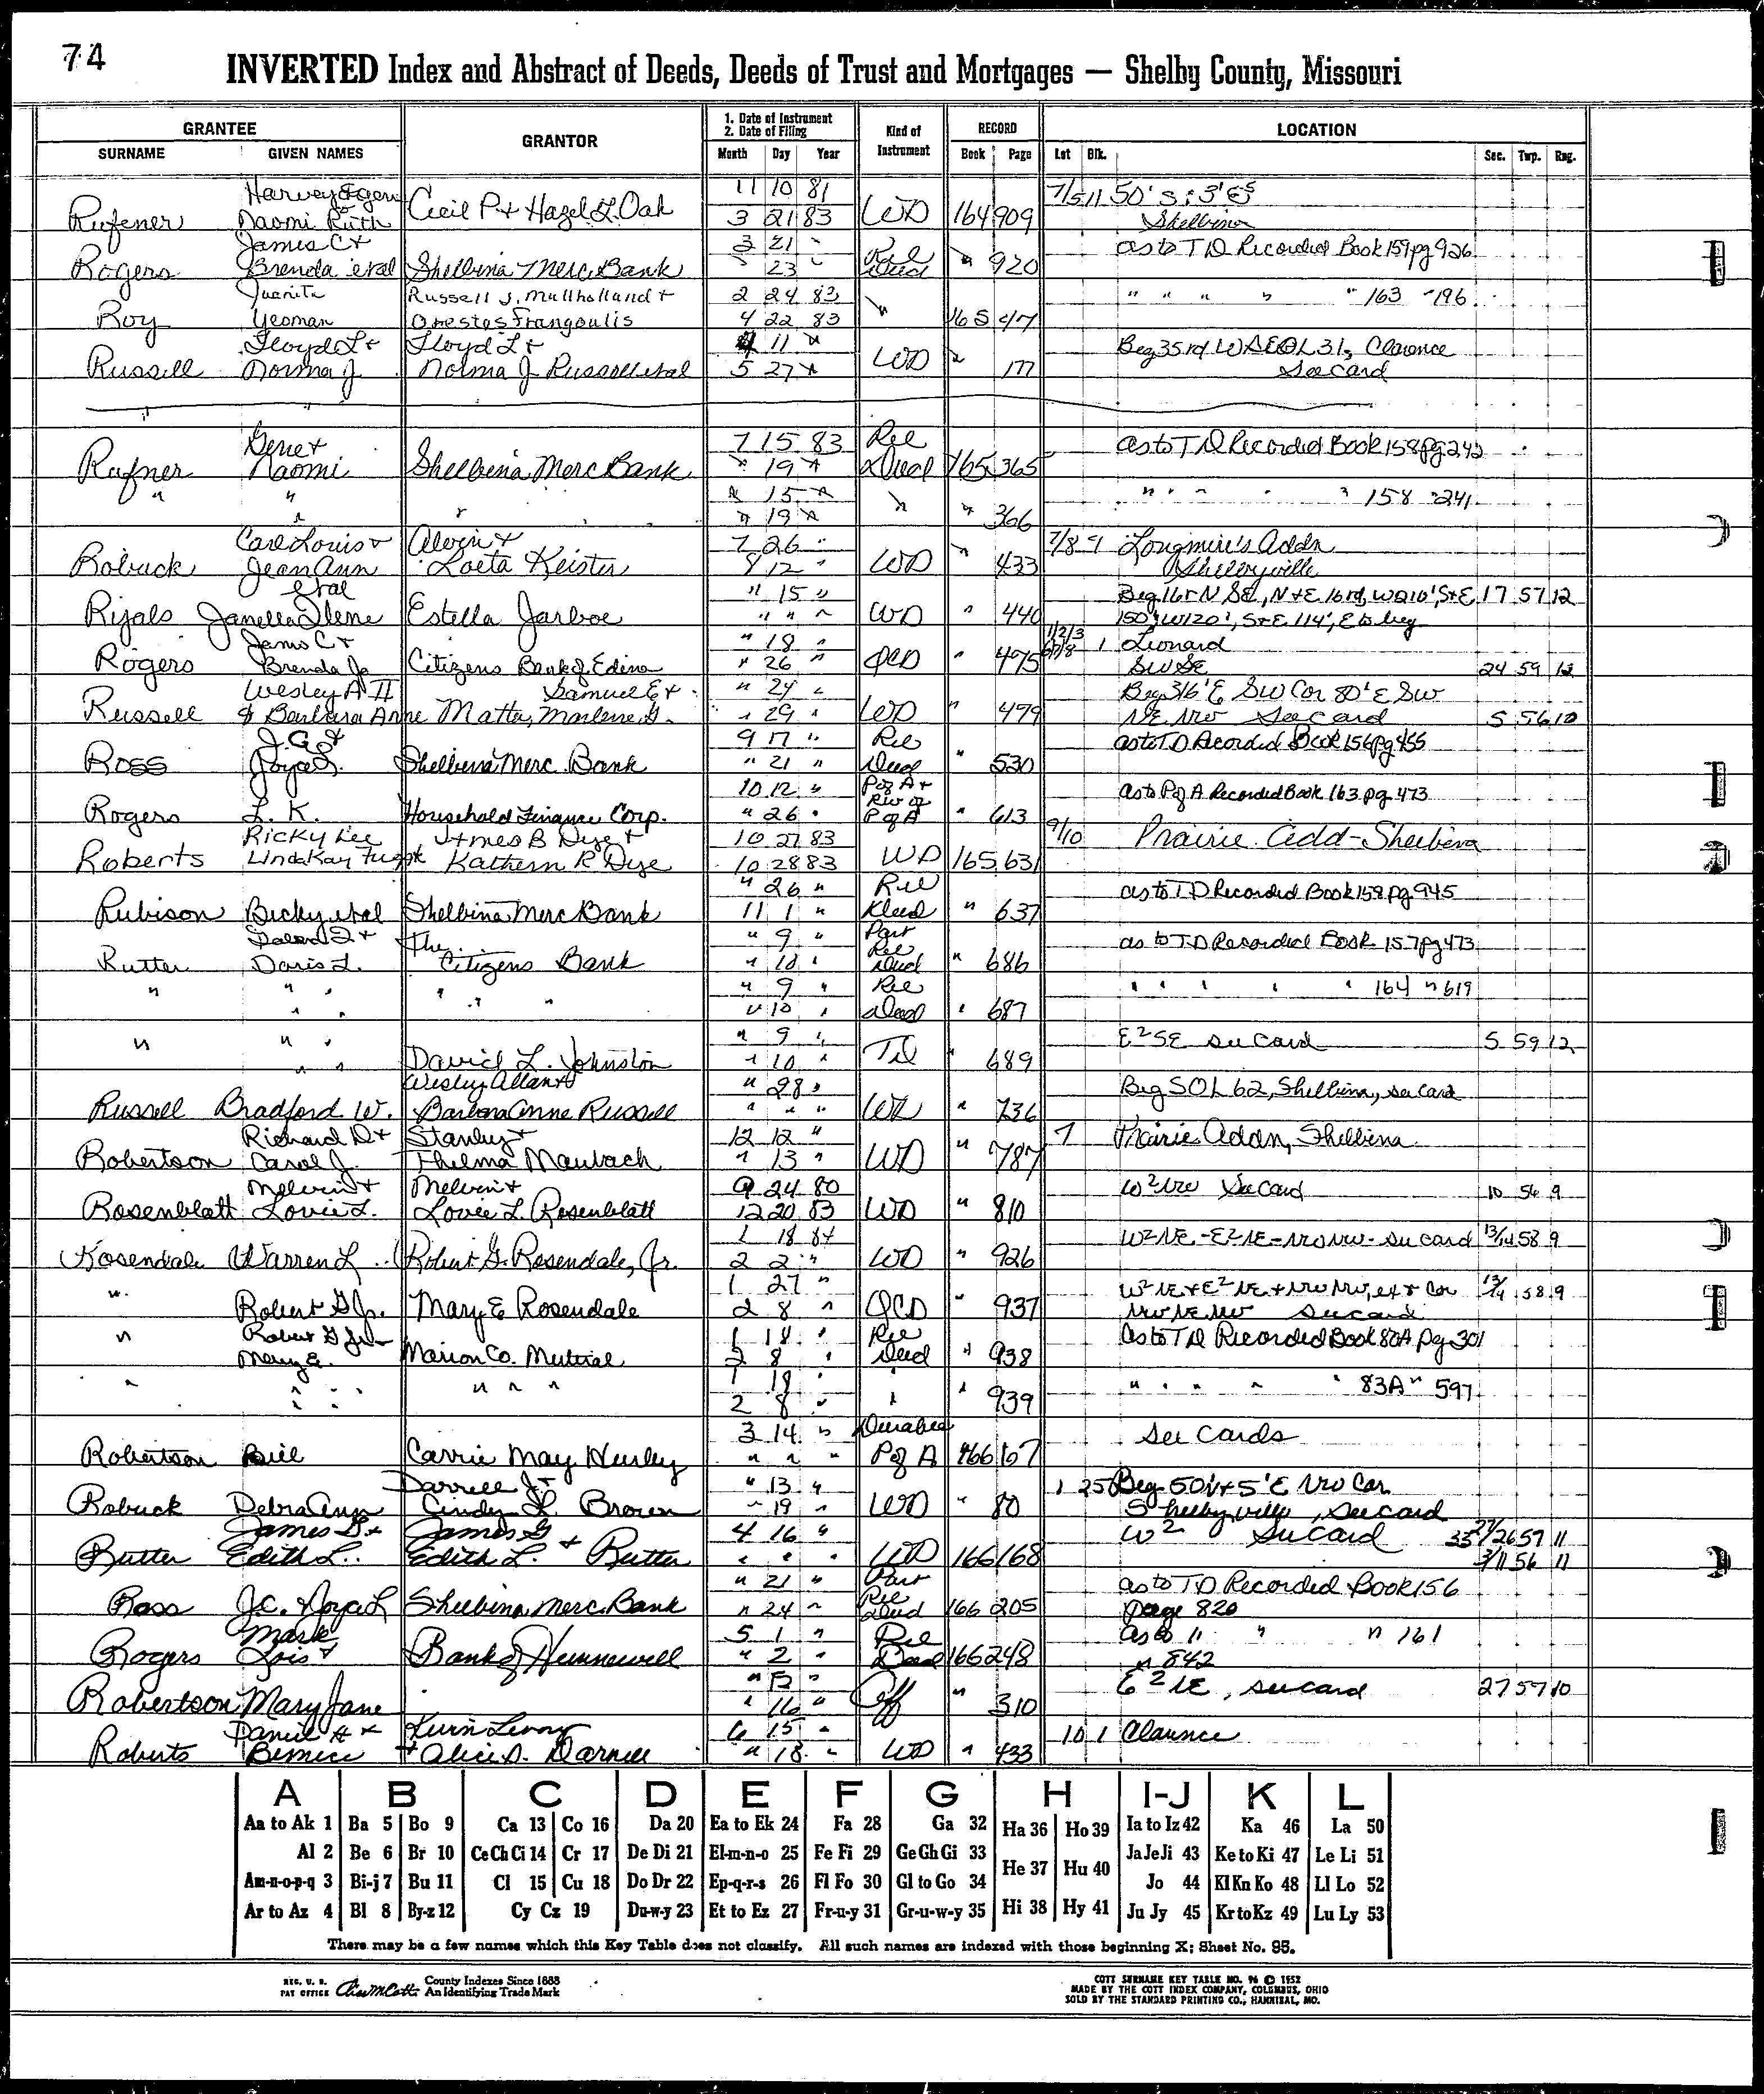 74
INVERTED Index and Abstract of Deeds, Deeds of Trust and Mortgages — Shelby County, Missouri
GRANTEE GRANTOR 1. Date of Instrument 2. Date of Filing Kind of Instrument RECORD LOCATION
SURNAME GIVEN NAMES Month Day Year Book Page Lot Blk. Sec. Twp. Rng.
Harvey Eugene 11 10 81 7/5 11 50' S
Rufener Naomi Ruth Cecil P + Hazel L. Oak 3 21 83 WD 164 909 Shelbina
James C + 3 21 " Rel as to TD Recorded Book 159 pg 926
Rogers Brenda etal Shelbina Merc Bank " 23 " Deed " 920
Juanita Russell J. Mullholland + 2 24 83 " " " " " 163 " 196
Roy Yeoman Orestes Frangoulis 4 22 83 " 165 47
Floyd L + Floyd L + 4 11 " Beg 35 rd W SE OL 31, Clarence
Russell Norma J. Norma J Russell etal 5 27 " WD " 177 See Card
Gene + 7 15 83 Rel as to TD Recorded Book 158 pg 242
Rufner Naomi Shelbina Merc Bank " 19 " Deed 165 365
" " " 15 " " " " " " 158 " 241
" " " 19 " " " 366
Carl Louis + Alvin + 7 26 " 7/8 9 Longmire's Addn
Robuck Jean Ann Loeta Keister 8 12 " WD " 433 Shelbyville
etal " 15 " Beg 16 r N SE, N + E 16 rd, W 210', S + E 17 57 12
Rijals Janella Ilene Estella Jarboe " " " WD " 440 150', W 120', S + E 114', E to beg
James C + " 18 " 1/2/3 6/7/8 1 Leonard
Rogers Brenda Jo Citizens Bank of Edina " 26 " QCD " 475 SW SE 24 59 12
Wesley A II Samuel E + " 24 " Beg 316' E SW Cor 80' E SW
Russell & Barbara Anne Matter, Marlene G. " 29 " WD " 479 NE NW See Card 5 56 10
J.C. & 9 17 " Rel as to TD Recorded Book 156 pg 455
Ross Joyce L. Shelbina Merc. Bank " 21 " Deed " 530
10 12 " P of A + Rev of as to P of A Recorded Book 163 pg 473
Rogers L. K. Household Finance Corp. " 26 " P of A " 613
Ricky Lee James B Dye + 10 27 83 9/10 Prairie Add - Shelbina
Roberts Linda Kay Fuqua Kathern R Dye 10 28 83 WD 165 631
" 26 " Rel as to TD Recorded Book 158 pg 945
Rubison Becky etal Shelbina Merc Bank 11 1 " Deed " 637
+ The " 9 " Part Rel as to TD Recorded Book 157 pg 473
Rutter Doris L. Citizens Bank " 10 " Deed " 686
" " " " " " " 9 " Rel " " " " " 164 " 619
" " " 10 " Deed " 687
" " " " 9 " E 2 SE See Card 5 59 12
" " David L. Johnston " 10 " TD " 689
Wesley Allan + " 28 " Beg SOL 62, Shelbina, see card
Russell Bradford W. Barbara Anne Russell " " " WD " 736
Richard D + Stanley + 12 12 " 7 Prairie Addn, Shelbina
Robertson Carol J. Thelma Maubach " 13 " WD " 787
Melvin + Melvin + 9 24 80 W 2 NW See Card 10 56 9
Rosenblatt Lovie L. Lovie L. Rosenblatt 12 20 83 WD " 810
1 18 84 W 2 NE - E 2 NE - NW NW - See Card 13/14 58 9
Rosendale Warren L. Robert G. Rosendale, Jr. 2 2 " WD " 926
" 1 27 " W 2 NE + E 2 NE + NW NW, ex + Cor 13/14 58 9
Robert G Jr. Mary E Rosendale 2 8 " QCD " 937 NW NE NW See card
" Robert G Jr 1 18 " Rel as to TD Recorded Book 80A pg 301
Mary E. Marion Co. Mutual 2 8 " Deed " 938
" " " " " " " 1 18 " " " " " " 83A " 597
2 8 " " " 939
3 14 " Durable See Cards
Robertson Bill Carrie May Hurley " " " P of A 166 67
Darrell J + " 13 " 1 25 Beg 50 N + 5' E NW Cor
Robuck Debra Ann Cindy L. Brown " 19 " WD " 80 Shelbyville, See card
James G + James G 4 16 " W 2 See Card 35 27/26 57 11
Rutter Edith L. Edith L. + Rutter " " " WD 166 168 3/11 56 11
" 21 " Part Rel as to TD Recorded Book 156
Ross J.C. & Joyce L Shelbina Merc. Bank " 24 " Deed 166 205 page 820
Mark 5 1 " Rel as to " " " 161
Rogers Lois + Bank of Hunnewell " 2 " Deed 166 248 " 842
" " E 2 NE, see card 27 57 10
Robertson Mary Jane " 16 " Aff " 310
Daniel H + Kevin Lenny 6 15 " 10 1 Clarence
Roberts Bernice + Alice A. Darnell " 18 " WD " 433
A B C D E F G H I-J K L
Aa to Ak 1 Ba 5 Bo 9 Ca 13 Co 16 Da 20 Ea to Ek 24 Fa 28 Ga 32 Ha 36 Ho 39 Ia to Iz 42 Ka 46 La 50
Al 2 Be 6 Br 10 Ce Ch Ci 14 Cr 17 De Di 21 El-m-n-o 25 Fe Fi 29 Ge Gh Gi 33 He 37 Hu 40 Ja Je Ji 43 Ke to Ki 47 Le Li 51
Am-n-o-p-q 3 Bi-j 7 Bu 11 Cl 15 Cu 18 Do Dr 22 Ep-q-r-s 26 Fl Fo 30 Gl to Go 34 Jo 44 Kl Kn Ko 48 Ll Lo 52
Ar to Az 4 Bl 8 By-z 12 Cy Cz 19 Du-w-y 23 Et to Ez 27 Fr-u-y 31 Gr-u-w-y 35 Hi 38 Hy 41 Ju Jy 45 Kr to Kz 49 Lu Ly 53
There may be a few names which this Key Table does not classify. All such names are indexed with those beginning X; Sheet No. 95.
REG. U. S. PAT OFFICE County Indexes Since 1888 An Identifying Trade Mark
COTT SURNAME KEY TABLE NO. 96 © 1952
MADE BY THE COTT INDEX COMPANY, COLUMBUS, OHIO
SOLD BY THE STANDARD PRINTING CO., HANNIBAL, MO.